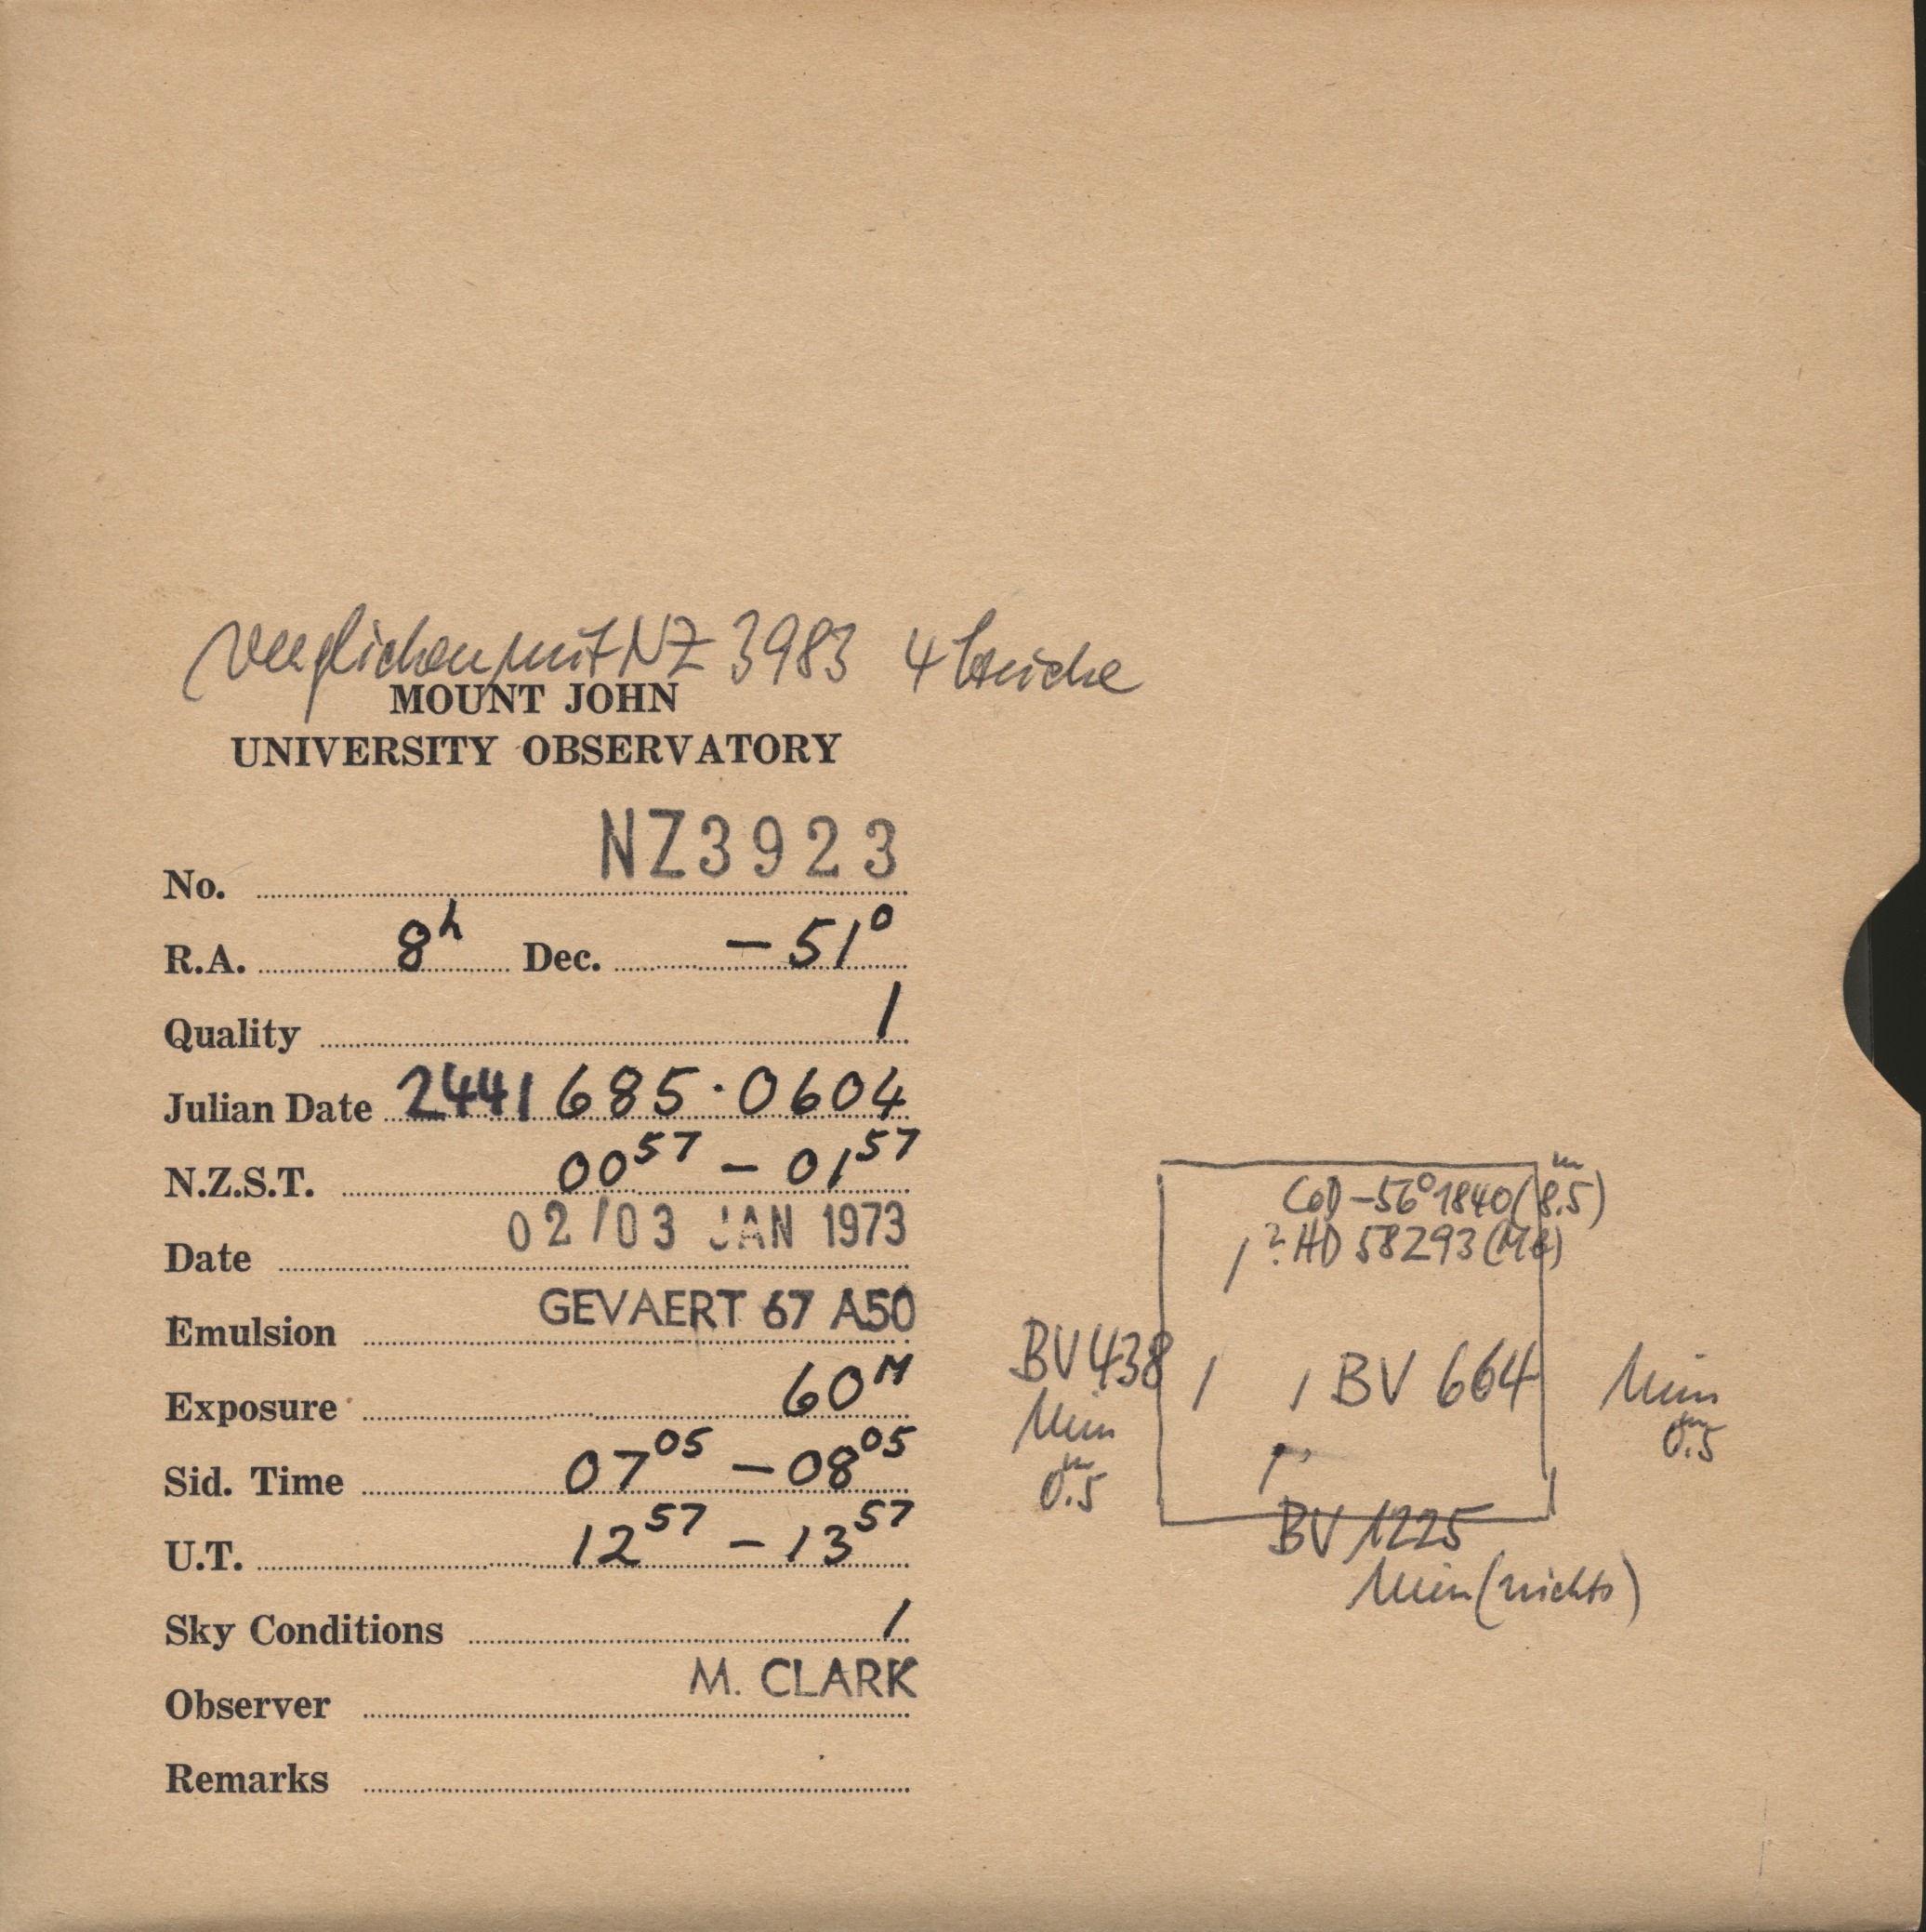 verglichen mit NZ 3983 4 Striche
MOUNT JOHN
UNIVERSITY OBSERVATORY
No. NZ3923
R.A. 8h Dec. -51°
Quality 1
Julian Date 2441685·0604
N.Z.S.T. 00 57 – 01 57
Date 02/03 JAN 1973
Emulsion GEVAERT 67 A50
Exposure 60M
Sid. Time 07 05 – 08 05
U.T. 12 57 – 13 57
Sky Conditions 1
Observer M. CLARK
Remarks
CoD -56° 1840 (8.5) m
? HD 58293 (M)
BV 438
Min
0.5 m
BV 664
Min
0.5 m
BV 1225
Min (nichts)